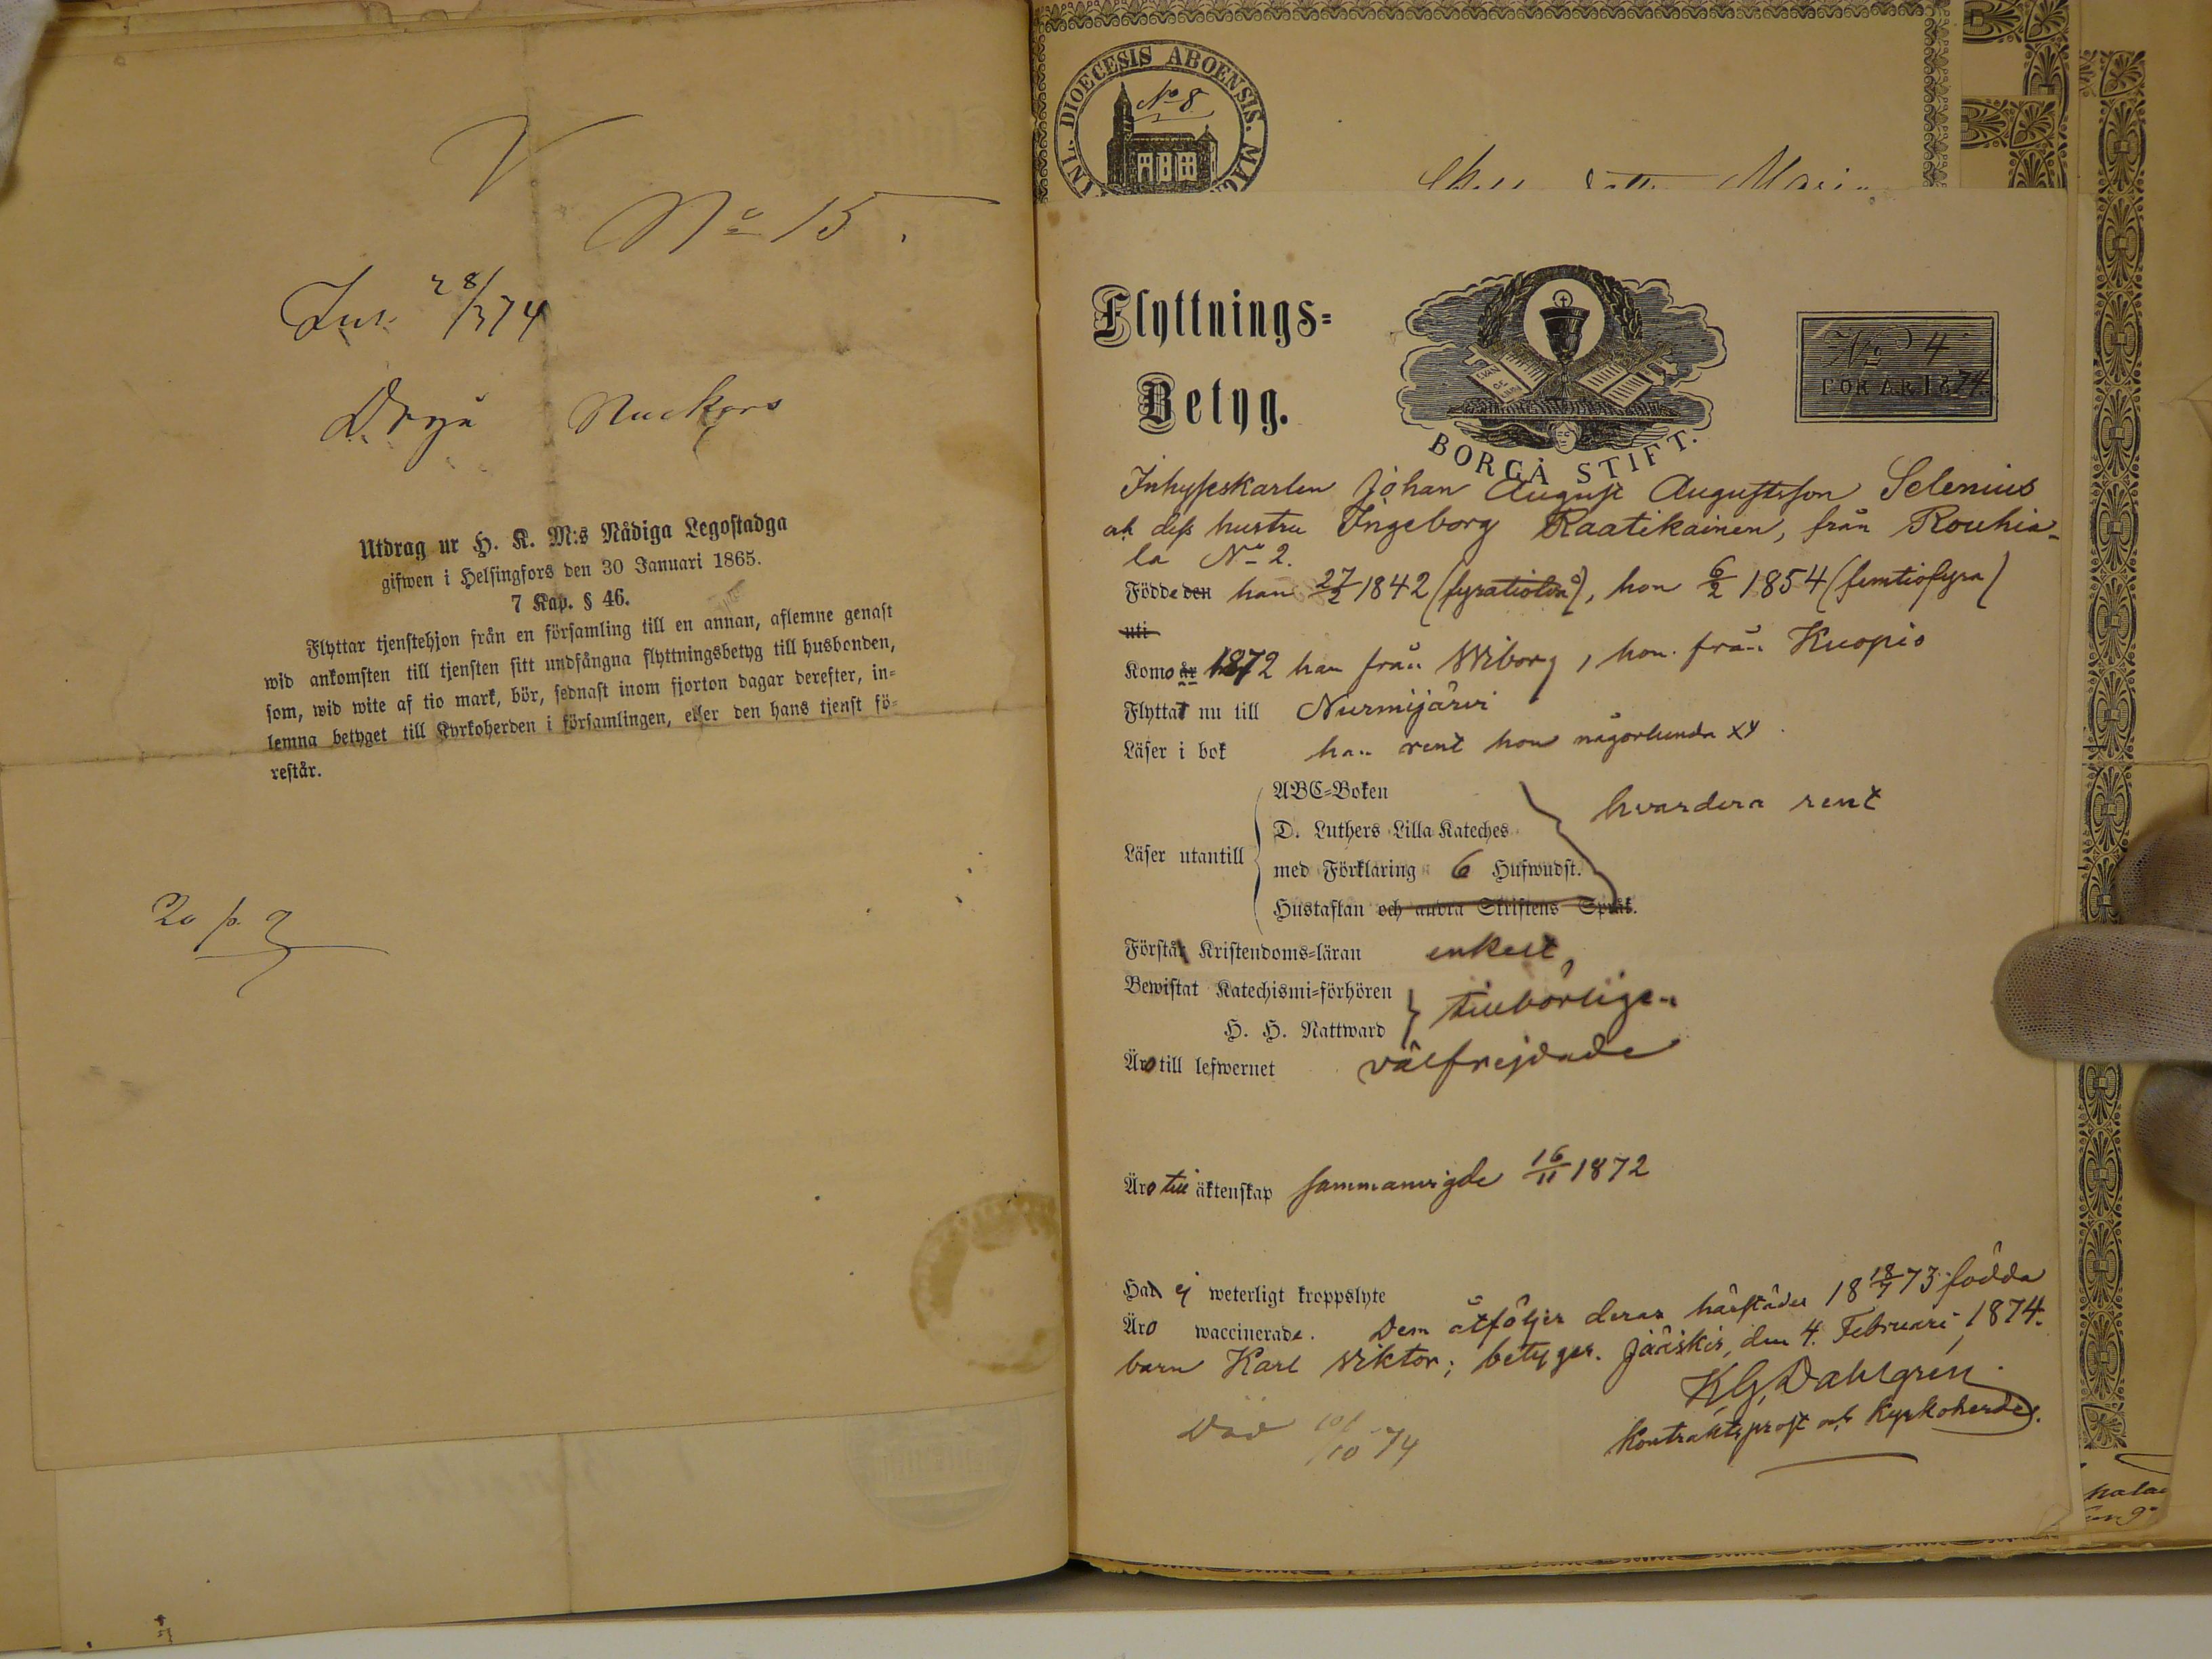 V
No 15.
Ins. 28/3 74
Nuckars
Utdrag ur H. K. M:s Nådiga Legostadga
gifwen i Helsingfors den 30 Januari 1865.
7 Kap. § 46.
Flyttar tjenstehjon från en församling till en annan, aflemne genast
wid ankomsten till tjensten sitt undfångna flyttningsbetyg till husbonden,
som, wid wite af tio mark, bör, sednast inom fjorton dagar derefter, in-
lemna betyget till Kyrkoherden i församlingen, eller den hans tjenst fö-
restår.
20 p.
DIOECESIS ABOENSIS.
No 8
Flyttnings-
Betyg.
BORGÅ STIFT.
No 4
FÖR ÅR 1874.
Inhyseskarlen Johan August Augustsson Selenius
och dess hustru Ingeborg Raatikainen, från Rouhia-
la No 2.
Födde den han 27/2 1842 (fyratiotvå), hon 6/2 1854 (femtiofyra)
uti
Komo år 1872 han från Wiborg, hon från Kuopio
Flytta nu till Nurmijärvi
Läser i bok han rent hon någorlunda xy
ABC-Boken
D. Luthers Lilla Kateches
hvardera rent
Läser utantill
med Förklaring 6 Hufwudst.
Hustaflan och andra Skriftens Språk.
Förstå Kristendoms-läran enkelt
Bewistat Katechismi-förhören
H. H. Nattward
tillbörligen
Äro till lefwernet välfrejdade
Äro till äktenskap sammanvigde 16/11 1872
Ha ej weterligt kroppslyte
Äro waccinerade. Dem åtföljer deras härstädes 18 18/7 73 födda
barn Karl Viktor; betygar. Jääskis, den 4. Februari 1874.
K G Dahlgren
Kontraktsprost och Kyrkoherde.
Död 10 74